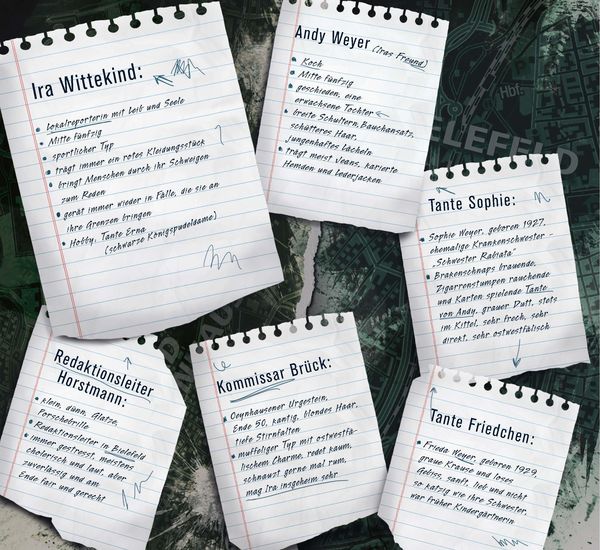 Ira Wittekind:
Lokalreporterin mit Leib und Seele
Mitte fünfzig
sportlicher Typ
trägt immer ein rotes Kleidungsstück
bringt Menschen durch ihr Schweigen
zum Reden
gerät immer wieder in Fälle, die sie an
ihre Grenzen bringen
Hobby, Tante Erna
(schwarze Königspudeldame)
Andy Weyer (Iras Freund)
Koch
Mitte fünfzig
geschieden, eine
erwachsene Tochter
breite Schultern, Bauchansatz,
schütteres Haar,
jungenhaftes Lächeln
trägt meist Jeans, karierte
Hemden und Lederjacken
Hbf.
IELEFELD
Tante Sophie:
Sophie Weyer, geboren 1927,
ehemalige Krankenschwester -
„Schwester Rabiata"
Brakenschnaps brauende,
Zigarrenstumpen rauchende
und Karten spielende Tante
von Andy, grauer Dutt, stets
im Kittel, sehr frech, sehr
direkt, sehr ostwestfälisch
Redaktionsleiter
Horstmann:
klein, dünn, Glatze,
Forscherbrille
Redaktionsleiter in Bielefeld
immer gestresst, meistens
cholerisch und laut, aber
zuverlässig und am
Ende fair und gerecht
Kommissar Brück:
Oeynhausener Urgestein,
Ende 50, kantig, blondes Haar,
tiefe Stirnfalten
muffeliger Typ mit ostwestfä-
lischem Charme, redet kaum,
schnauzt gerne mal rum,
mag Ira insgeheim sehr
Tante Friedchen:
Frieda Weyer, geboren 1929,
graue Krause und loses
Gebiss, sanft, lieb und nicht
so katzig wie ihre Schwester,
war früher Kindergärtnerin